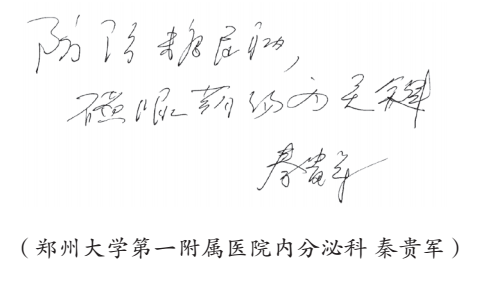 防糖尿病，
为关键
秦贵军
（郑州大学第一附属医院内分泌科 秦贵军）